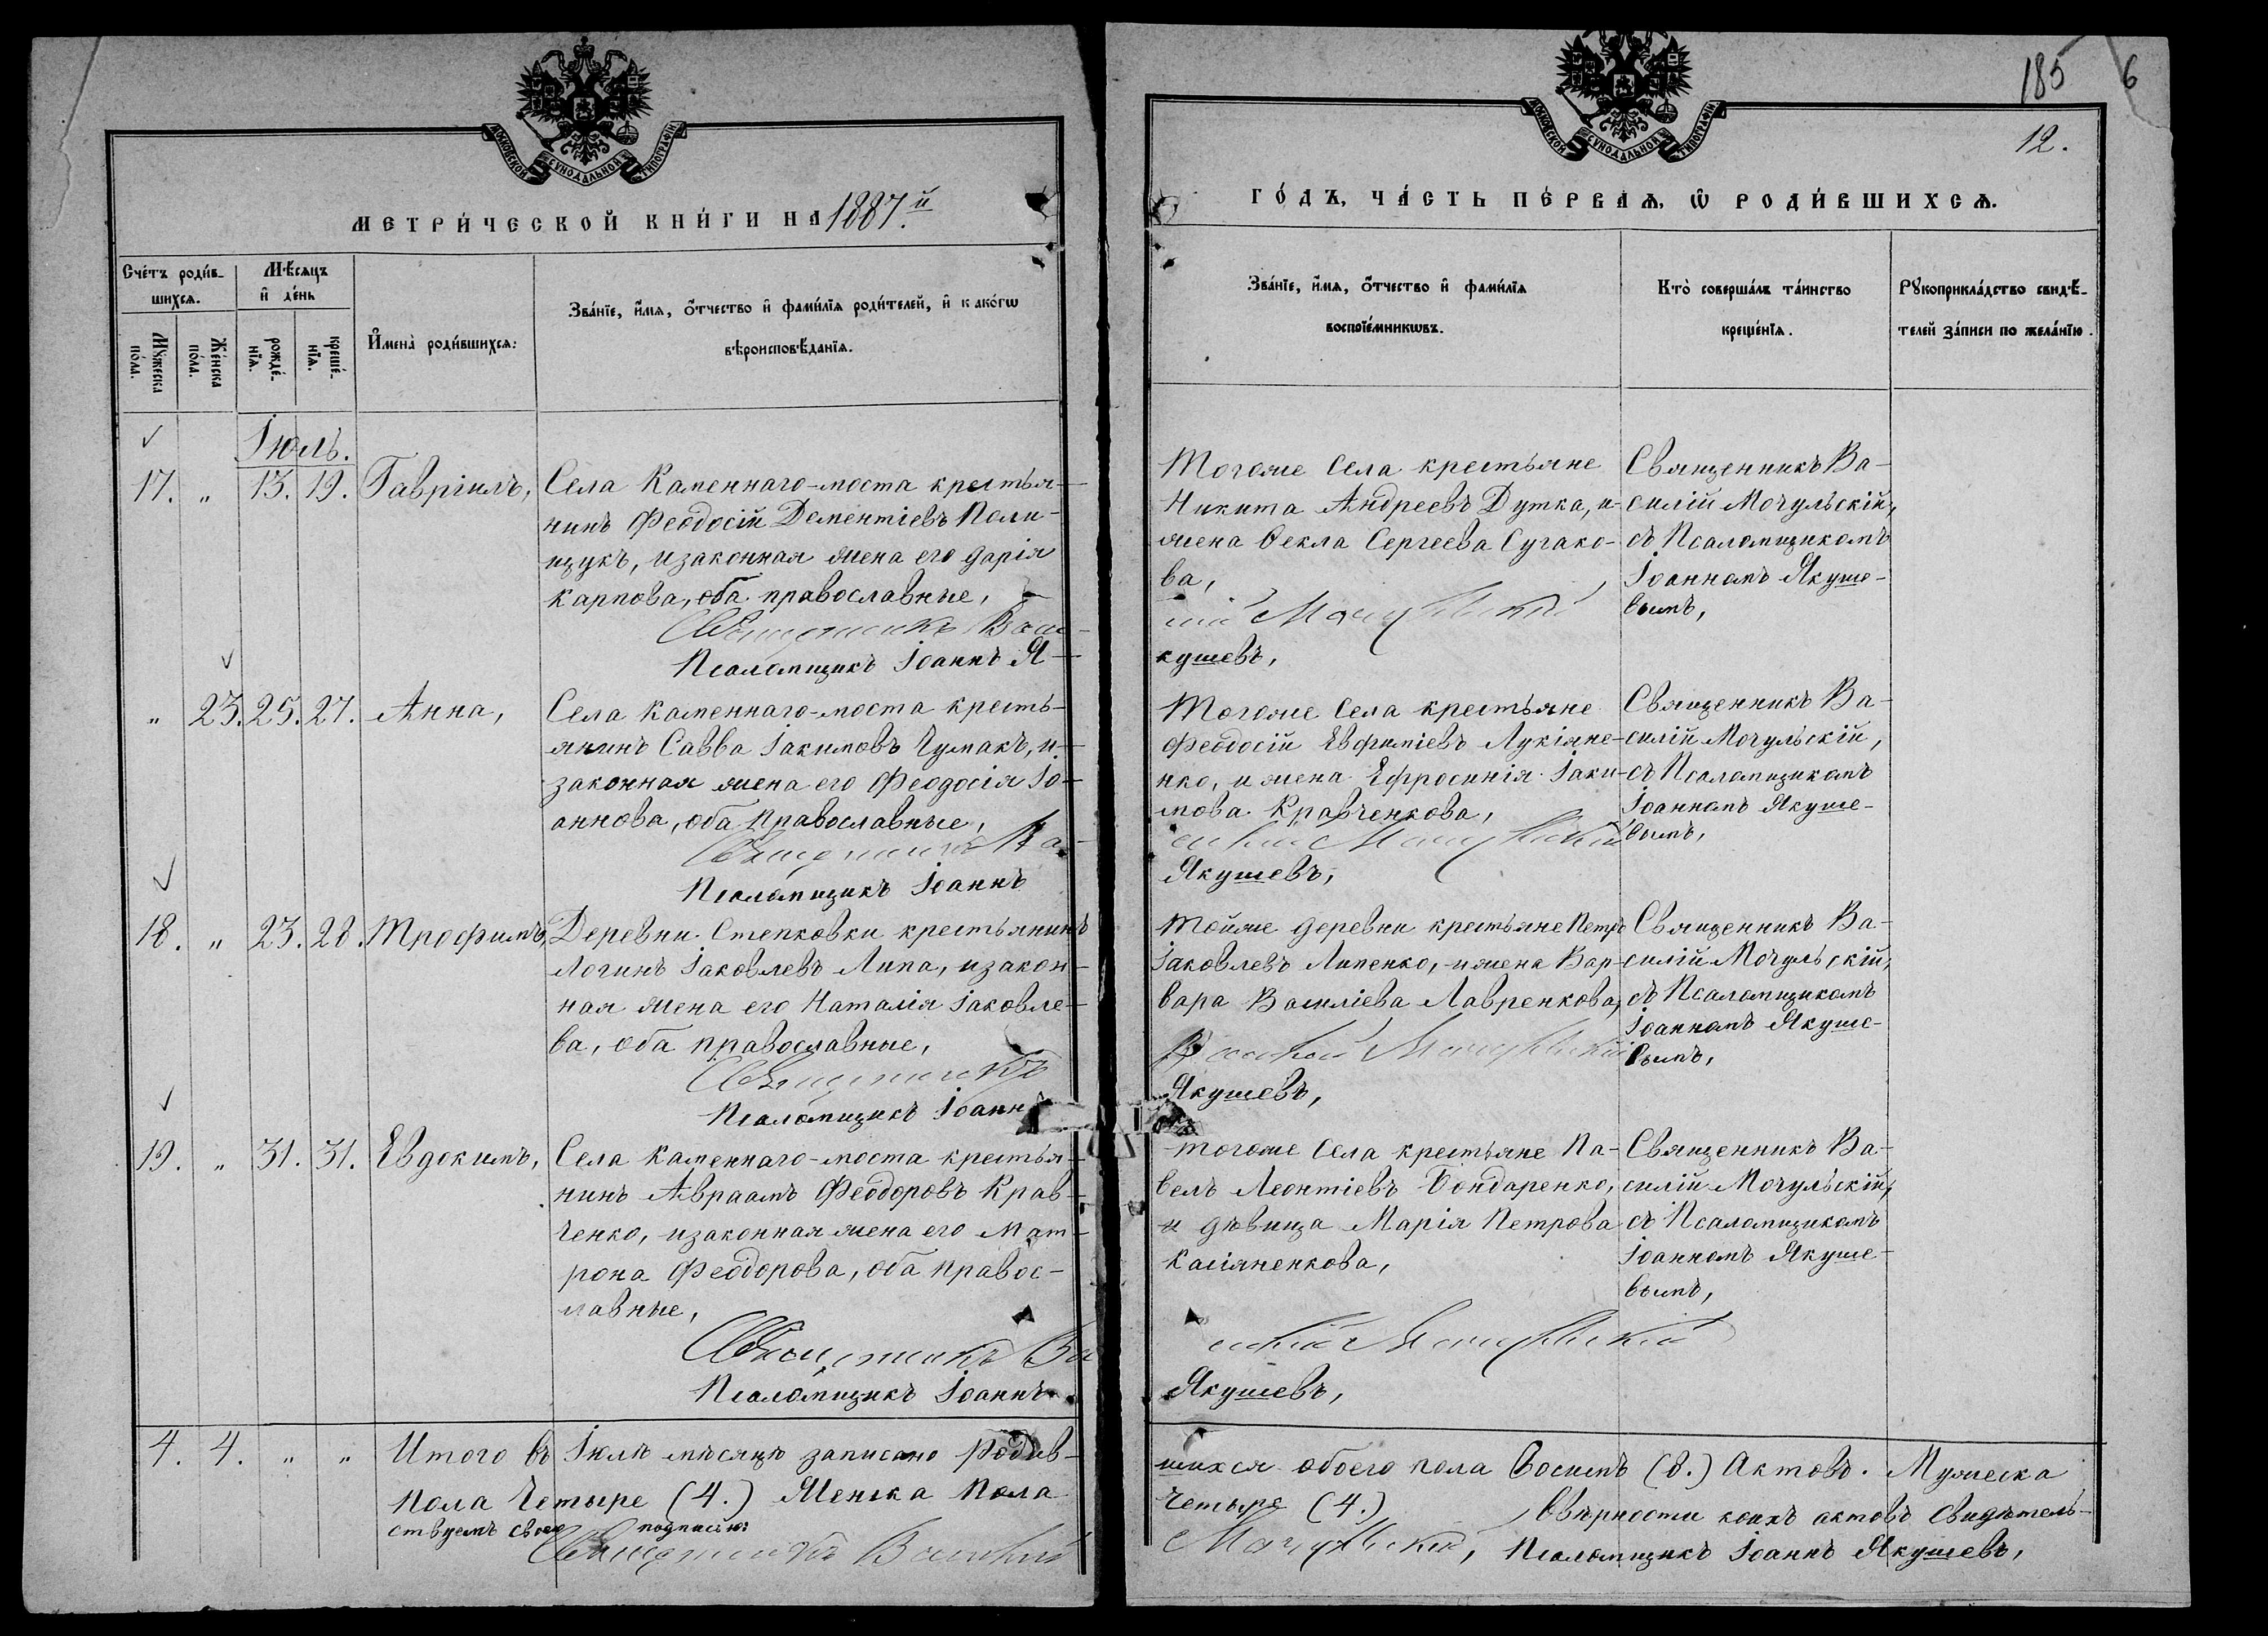 МОСКОВСКОЙ СУНОДАЛЬНОЙ ТИПОГРАФІИ
МЕТРИ́ЧЕСКОЙ КНИ́ГИ НА 1887.й
Сче́тъ роди́в-
шихсѧ.
Мѣ́сѧцъ
и҆ де́нь
Мꙋ́жеска
по́ла.
Же́нска
по́ла.
рожде́-
нїѧ.
креще́-
нїѧ.
И҆мена̀ роди́вшихсѧ:
Зва́нїе, и҆́мѧ, ѻ҆́тчество и҆ фами́лїѧ роди́телей, и҆ како́гѡ
вѣроисповѣ́данїѧ.
Іюль.
17. „ 13. 19. Гавріилъ,
Села Каменнаго-моста крестья-
нинъ Феодосій Дементіевъ Поли-
щукъ, изаконная жена его Дарія
Карпова, оба православные,
Священникъ Васи-
Псаломщикъ Іоаннъ Я-
„ 23. 25. 27. Анна,
Села Каменнаго-моста кресть-
янинъ Савва Іакимовъ Чумакъ, и-
законная жена его Феодосія Іо-
аннова, оба православные,
Священникъ Ва-
Псаломщикъ Іоаннъ
18. „ 23. 28. Трофимъ,
Деревни Степковки крестьянинъ
Логинъ Іаковлевъ Липа, изакон-
ная жена его Наталія Іаковле-
ва, оба православные,
Священникъ
Псаломщикъ Іоаннъ
19. „ 31. 31. Евдокимъ,
Села Каменнаго-моста крестья-
нинъ Авраамъ Феодоровъ Крав-
ченко, изаконная жена его Мат-
рона Феодорова, оба правос-
лавные,
Священникъ Ва
Псаломщикъ Іоаннъ
4. 4. „ „ Итого въ Іюлѣ мѣсяцѣ записано родив-
пола Четыре (4.) Женска пола
ствуемъ своею подписью:
Священникъ Василій
185 6
12.
МОСКОВСКОЙ СУНОДАЛЬНОЙ ТИПОГРАФІИ
ГО́ДЪ, ЧА́СТЬ ПЕ́РВАѦ, Ѡ҆ РОДИ́ВШИХСѦ.
Зва́нїе, и҆́мѧ, ѻ҆́тчество и҆ фами́лїѧ
воспрїе́мникѡвъ.
Кто̀ соверша́лъ та́инство
креще́нїѧ.
Рꙋкоприкла́дство свидѣ́-
телей за́писи по жела́нїю.
Тогоже Села крестьяне
Никита Андреевъ Дутка, и-
жена Ѳекла Сергеева Сугако-
ва,
лій Мочульскій
кушевъ,
Священникъ Ва-
силій Мочульскій,
съ Псаломщикомъ
Іоанномъ Якуше-
вымъ,
Тогоже Села крестьяне
Феодосій Евфиміевъ Лукіяне-
нко, и жена Ефросинія Іаки-
мова Кравченкова,
силій Мочульскій
Якушевъ,
Священникъ Ва-
силій Мочульскій,
съ Псаломщикомъ
Іоанномъ Якуше-
вымъ,
Тойже деревни крестьяне Петръ
Іаковлевъ Липенко, ижена Вар-
вара Василіева Лавренкова,
Василій Мочульскій
Якушевъ,
Священникъ Ва-
силій Мочульскій,
съ Псаломщикомъ
Іоанномъ Якуше-
вымъ,
тогоже Села крестьяне Па-
велъ Леонтіевъ Бондаренко,
и дѣвица Марія Петрова
Касіяненкова,
силій Мочульскій
Якушевъ,
Священникъ Ва-
силій Мочульскій,
съ Псаломщикомъ
Іоанномъ Якуше-
вымъ,
шихся обоего пола Восимъ (8.) Актовъ. Мужеска
Четыре (4.) Ввѣрности коихъ актовъ свидѣтель-
Мочульскій, Псаломщикъ Іоаннъ Якушевъ,